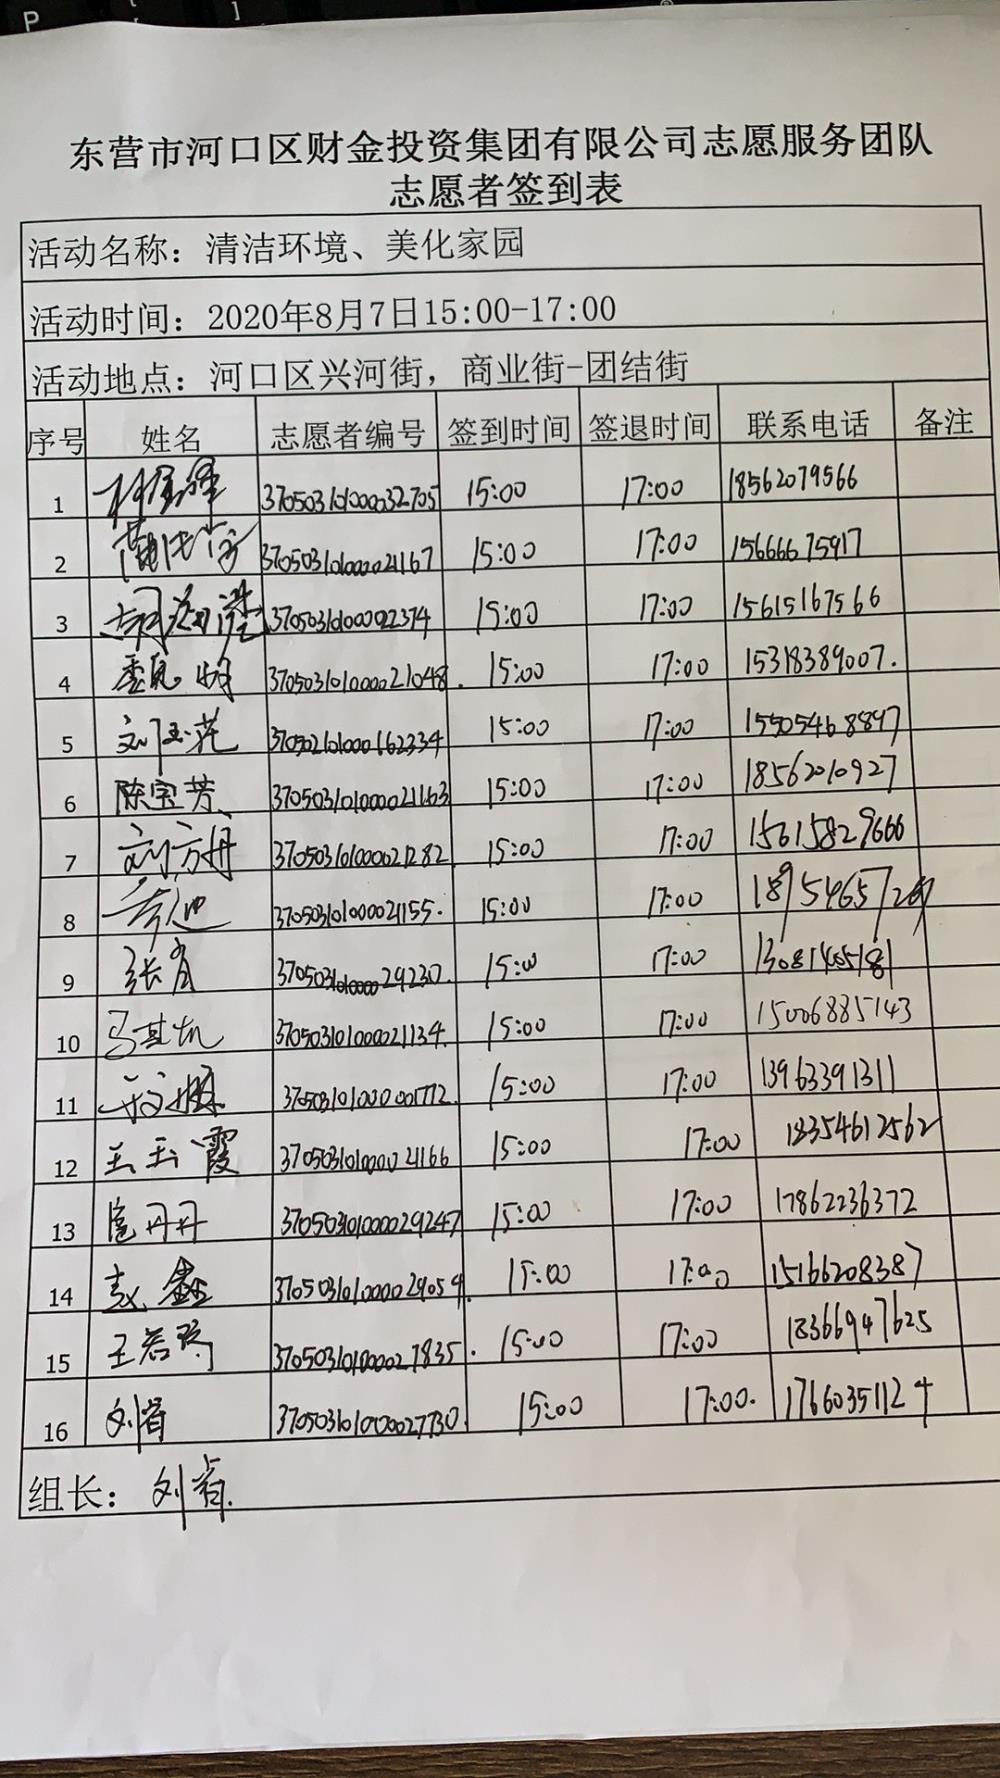 P
[
]
东营市河口区财金投资集团有限公司志愿服务团队
志愿者签到表
活动名称：清洁环境、美化家园
活动时间：2020年8月7日15:00-17:00
活动地点：河口区兴河街，商业街-团结街
序号 姓名 志愿者编号 签到时间 签退时间 联系电话 备注
1 3705031010000032705 15:00 17:00 18562079566
2 370503101000021167 15:00 17:00 15666675917
3 370503101000022374 15:00 17:00 15615167566
4 370503101000021048. 15:00 17:00 15318389007.
5 刘玉花 370502101000162334 15:00 17:00 15505468897
6 陈宝芳 370503101000021163 15:00 17:00 18562010927
7 刘方舟 370503101000021282. 15:00 17:00 15615829666
8 370503101000021155. 15:00 17:00
9 张育 370503101000029230. 15:00 17:00
10 马其凯 370503101000021134. 15:00 17:00 15006885143
11 15:00 17:00 13963391311
12 王玉霞 370503101000021166 15:00 17:00 18354612562
13 扈丹丹 370503101000029247 15:00 17:00 17862236372
14 赵鑫 370503101000029054 15:00 17:00 15166208387
15 王若琦 370503101000027835. 15:00 17:00 18366947625
16 刘省 370503101000027730. 15:00 17:00. 17660351124
组长：刘省.